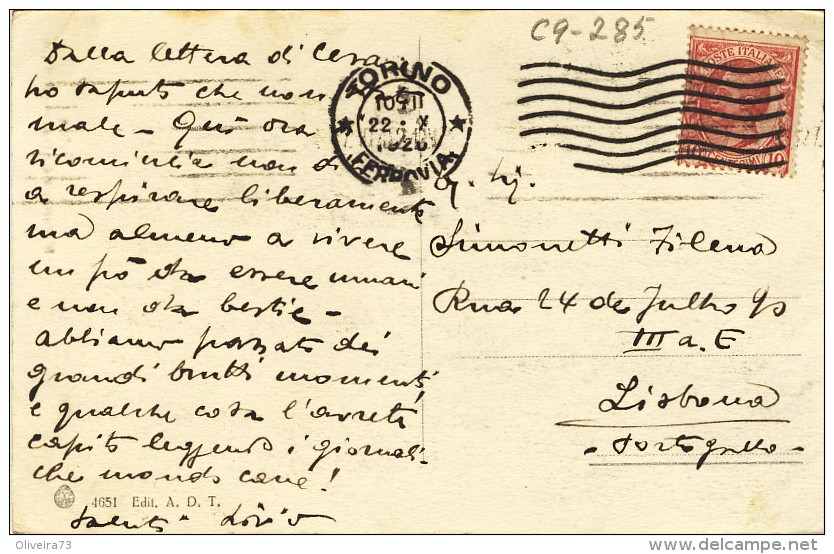 C9-285
POSTE ITALIANE
TORINO
22 · X
FERROVIA
Dalla lettera di Cesa
ho saputo che non
male – Qui ora
ricomincia non di
a respirare liberamente
ma almeno a vivere
un pò da essere umani
e non da bestie –
abbiamo passato dei
grandi brutti momenti
e qualche cosa l'avrete
capito leggendo i giornali.
che mondo cane!
Saluti Livio
Simonetti Filena
Rua 24 de Julho 90
III a. E
Lisbona
– Portogallo –
4651 Edit. A. D. T.
Oliveira73
delcampe.net